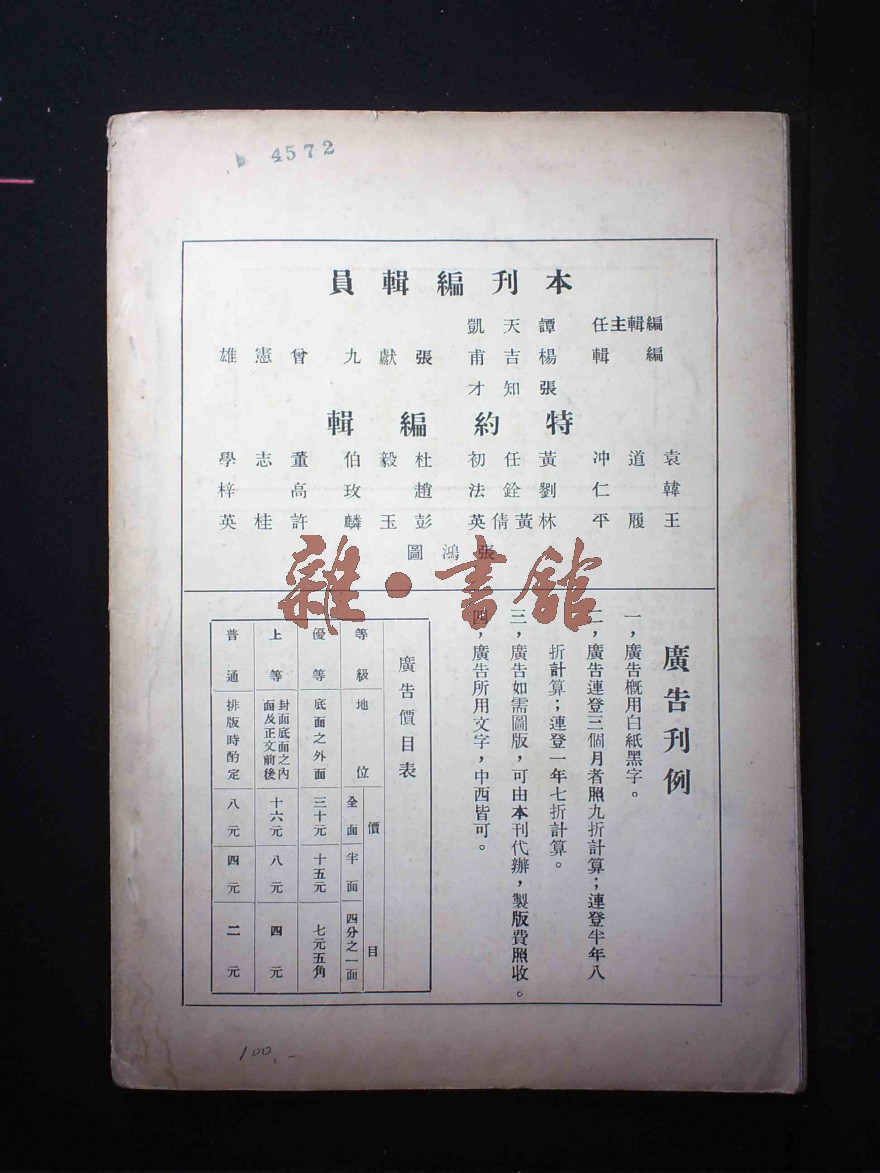 4572
本刊編輯員
編輯主任 譚天凱
編輯 楊吉甫 張獻九 曾憲雄
張知才
特約編輯
袁道冲 黃任初 杜毅伯 董志學
韓仁 劉銓法 趙玫 高梓
王履平 林黃倩英 彭玉麟 許桂英
張鴻圖
雜·書館
廣告刊例
一，廣告概用白紙黑字。
二，廣告連登三個月者照九折計算；連登半年八
折計算；連登一年七折計算。
三，廣告如需圖版，可由本刊代辦，製版費照收。
四，廣告所用文字，中西皆可。
廣告價目表
等級 地位 價目
全面 半面 四分之一面
優等 底面之外面 三十元 十五元 七元五角
上等 封面底面之內面及正文前後 十六元 八元 四元
普通 排版時酌定 八元 四元 二元
100.-